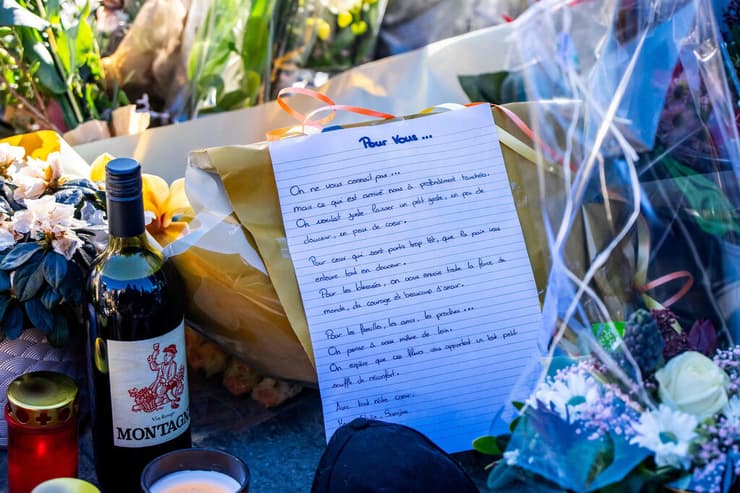 Pour Vous...
On ne vous connait pas...
mais ce qui est arrivé nous a profondément touchés.
On voulait juste laisser un petit geste, un peu de
douceur, un peu de coeur.
Pour ceux qui sont partis trop tôt, que la paix vous
entoure tout en douceur.
Pour les blessés, on vous envoie toute la force du
monde, du courage et beaucoup d'amour.
Pour les familles, les amis, les proches...
On pense à vous de loin.
On espère que ces fleurs vous apportent un tout petit
souffle de réconfort.
Avec tout notre coeur.
Vin Rouge
MONTAGN